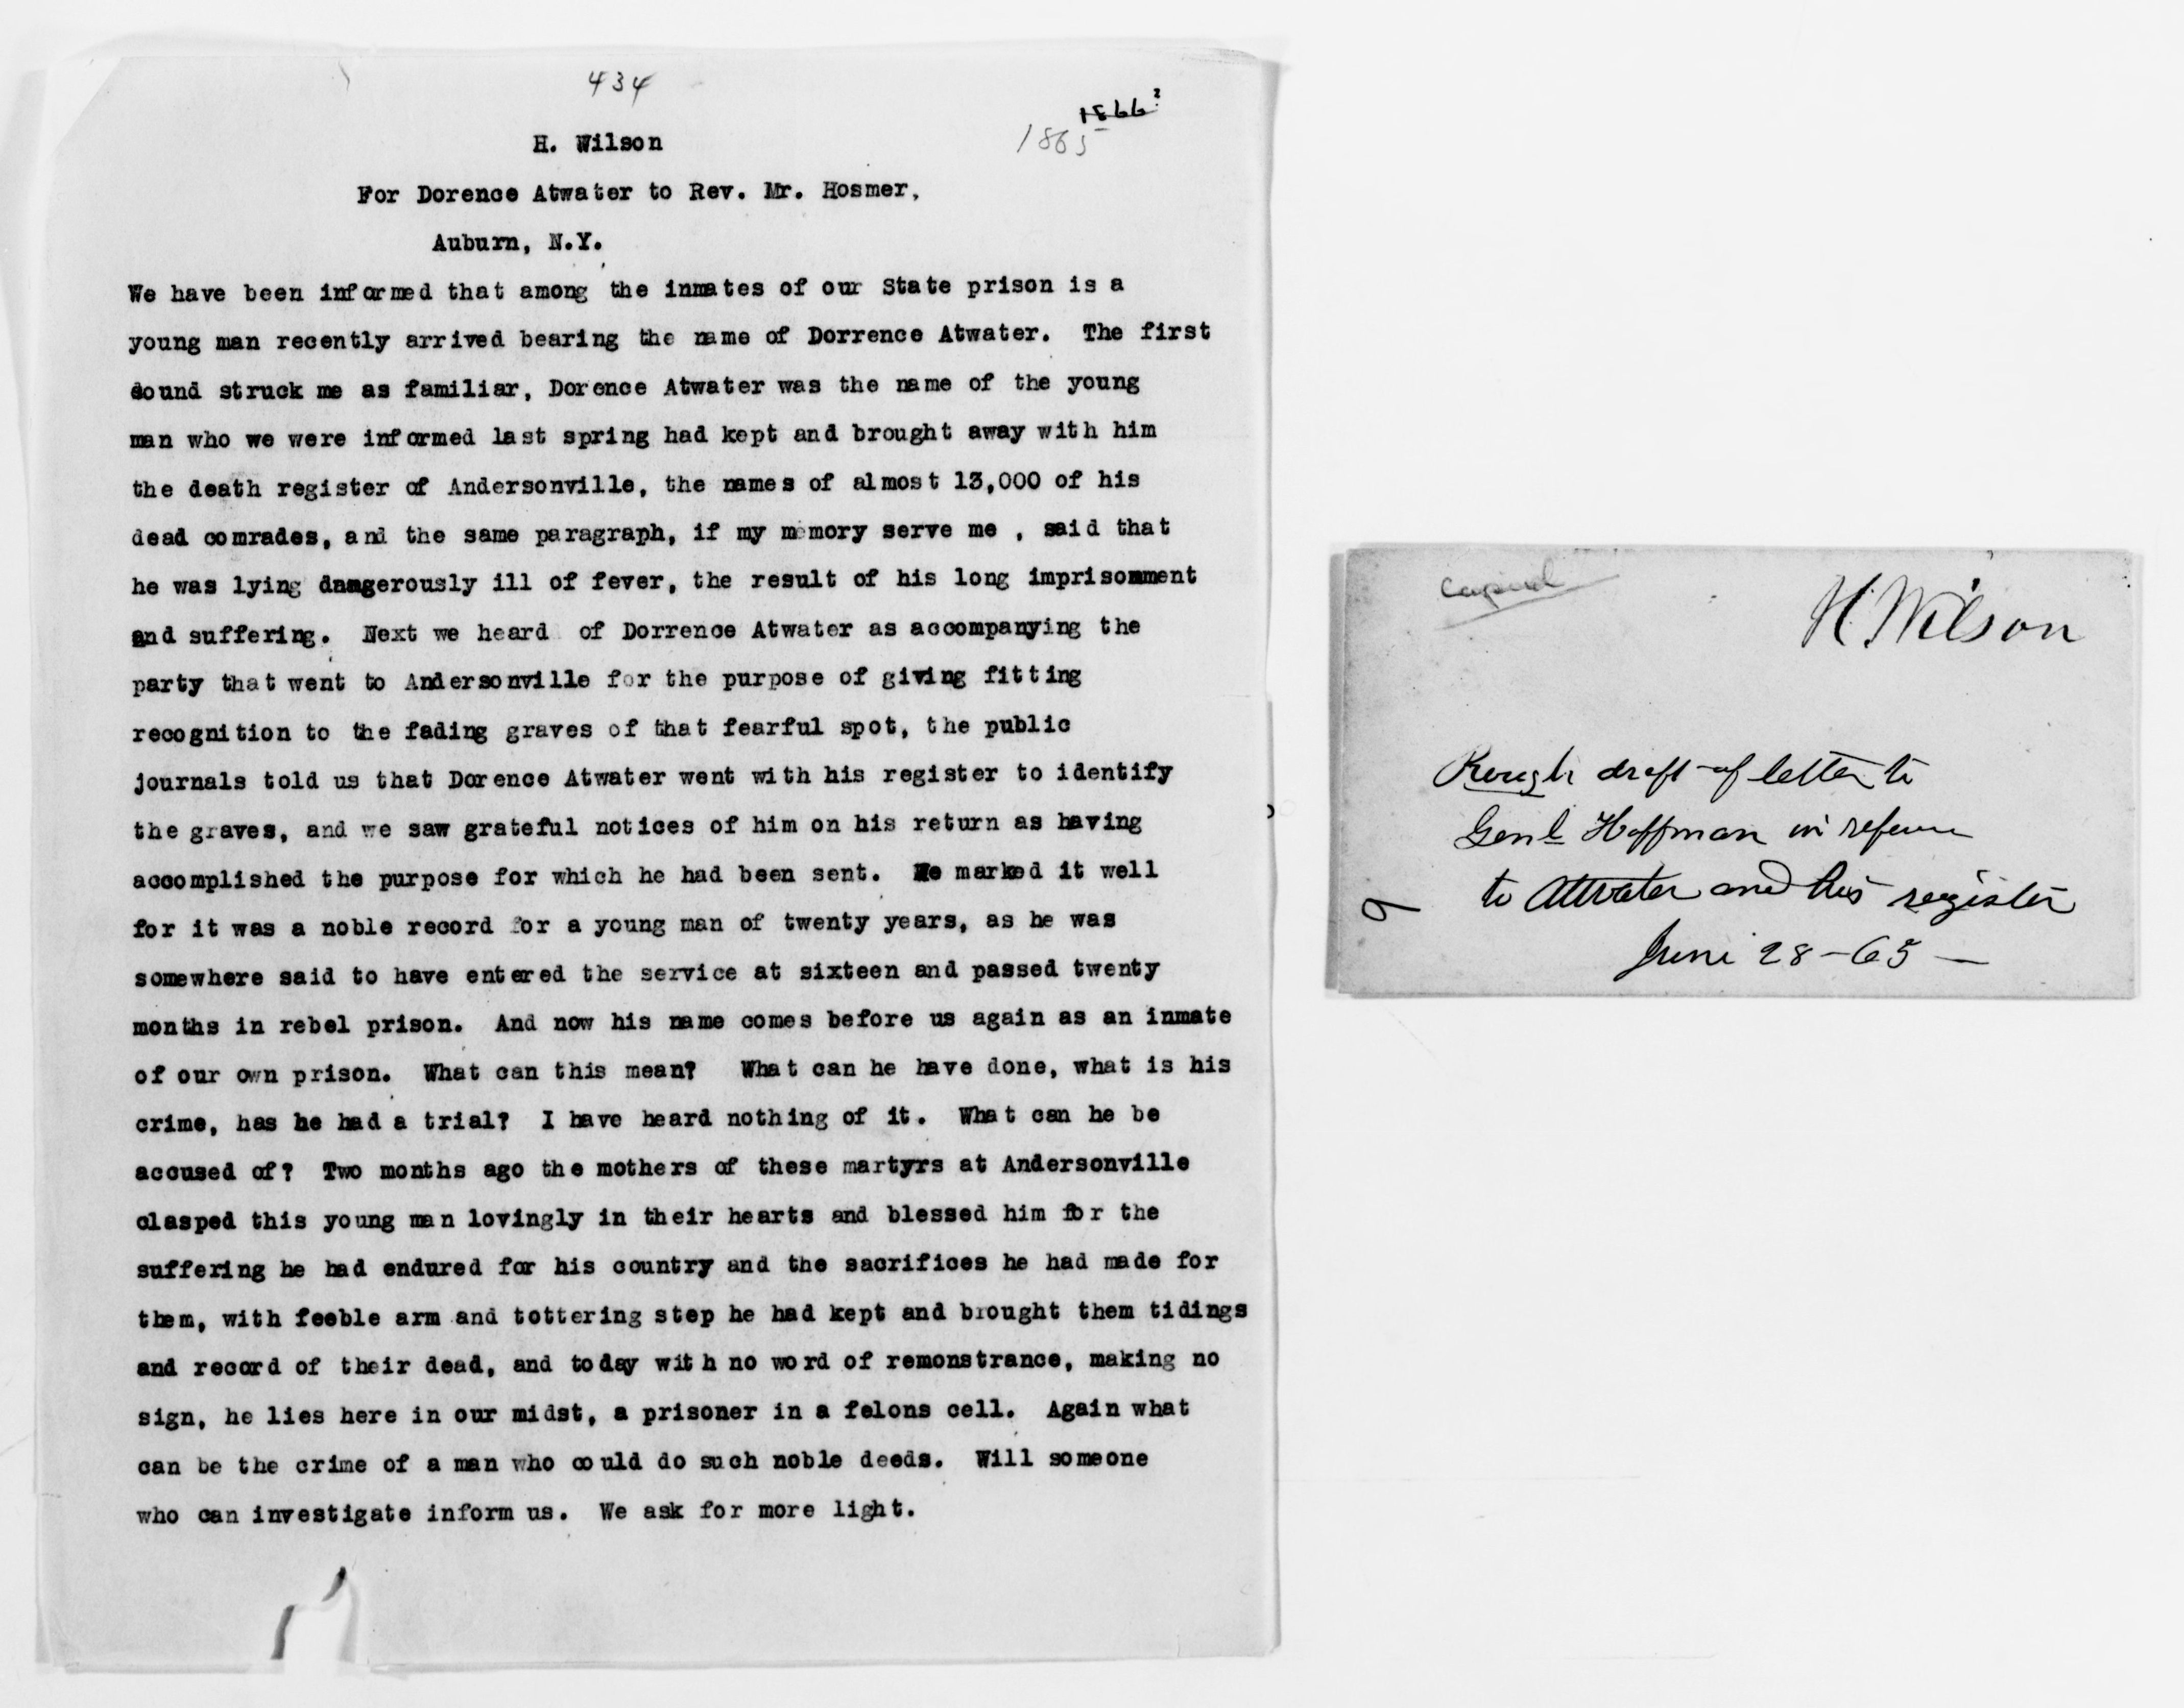 434
1866?
1865
H. Wilson
For Dorence Atwater to Rev. Mr. Hosmer,
Auburn, N.Y.
We have been informed that among the inmates of our State prison is a
young man recently arrived bearing the name of Dorrence Atwater. The first
sound struck me as familiar, Dorence Atwater was the name of the young
man who we were informed last spring had kept and brought away with him
the death register of Andersonville, the names of almost 13,000 of his
dead comrades, and the same paragraph, if my memory serve me , said that
he was lying dangerously ill of fever, the result of his long imprisomment
and suffering. Next we heard of Dorrence Atwater as accompanying the
party that went to Andersonville for the purpose of giving fitting
recognition to the fading graves of that fearful spot, the public
journals told us that Dorence Atwater went with his register to identify
the graves, and we saw grateful notices of him on his return as having
accomplished the purpose for which he had been sent. We marked it well
for it was a noble record for a young man of twenty years, as he was
somewhere said to have entered the service at sixteen and passed twenty
months in rebel prison. And now his name comes before us again as an inmate
of our own prison. What can this mean? What can he have done, what is his
crime, has he had a trial? I have heard nothing of it. What can he be
accused of? Two months ago the mothers of these martyrs at Andersonville
clasped this young man lovingly in their hearts and blessed him for the
suffering he had endured for his country and the sacrifices he had made for
them, with feeble arm and tottering step he had kept and brought them tidings
and record of their dead, and today with no word of remonstrance, making no
sign, he lies here in our midst, a prisoner in a felons cell. Again what
can be the crime of a man who could do such noble deeds. Will someone
who can investigate inform us. We ask for more light.
Copied
H. Wilson
Rough draft of letter to
Genl Hoffman in
to Attwater and his register
June 28-65-